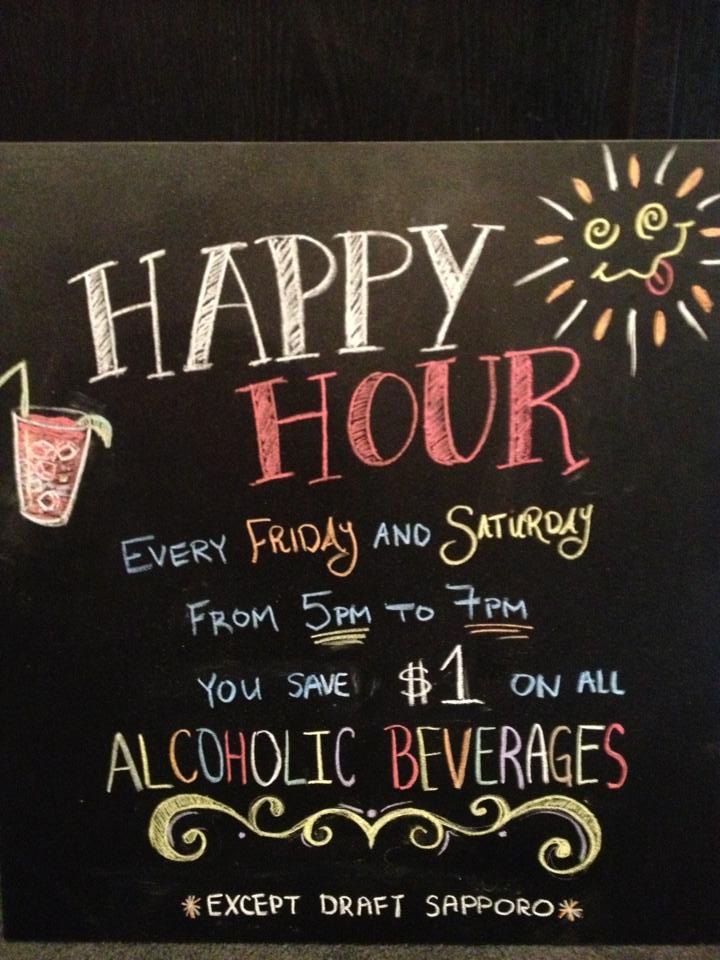 HAPPY
HOUR
EVERY FRIDAY AND SATURDAY
FROM 5PM TO 7PM
YOU SAVE $1 ON ALL
ALCOHOLIC BEVERAGES
*EXCEPT DRAFT SAPPORO*